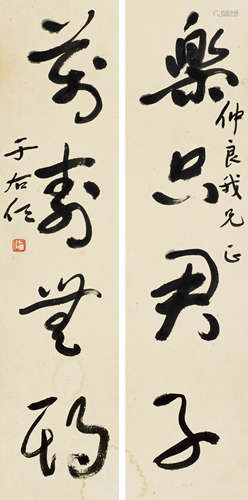 樂只君子
仲良我兄正
萬壽無期
于右任